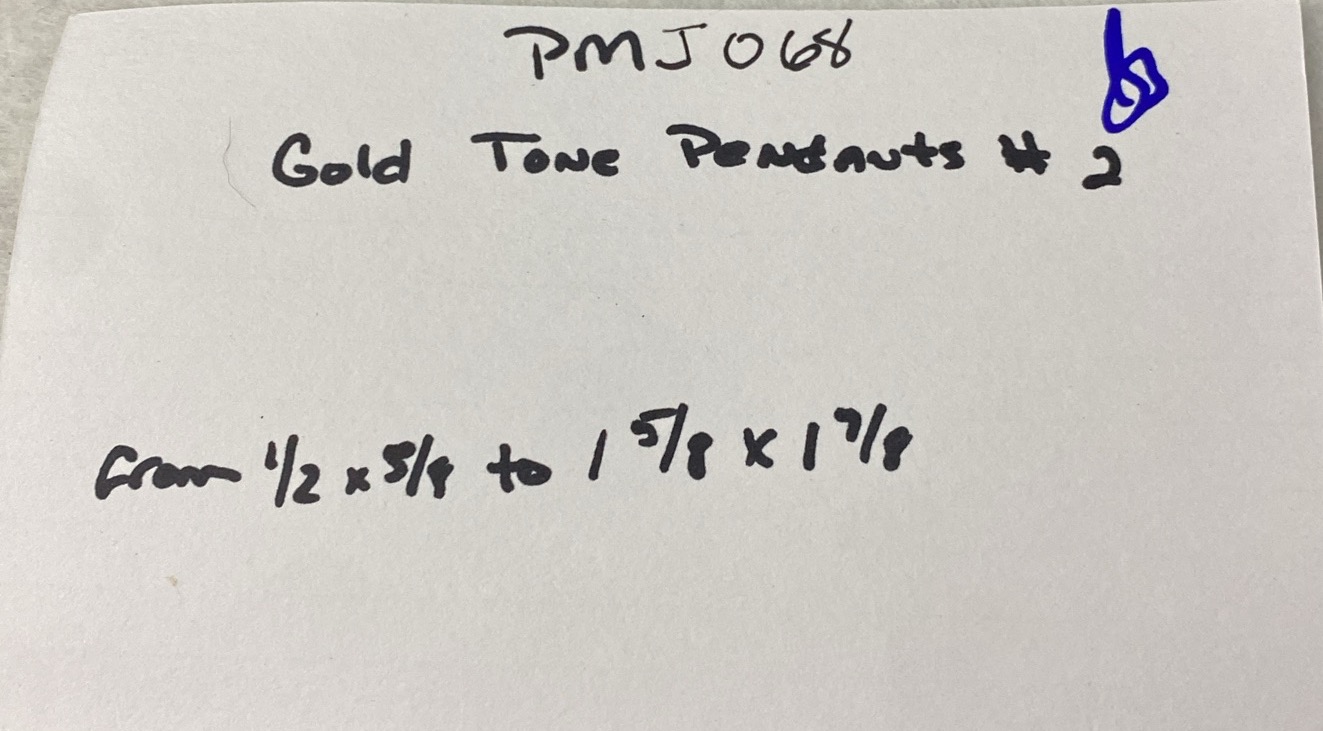 PMJ068
Gold Tone Pendants # 2
from 1/2 x 5/8 to 1 5/8 x 1 7/8